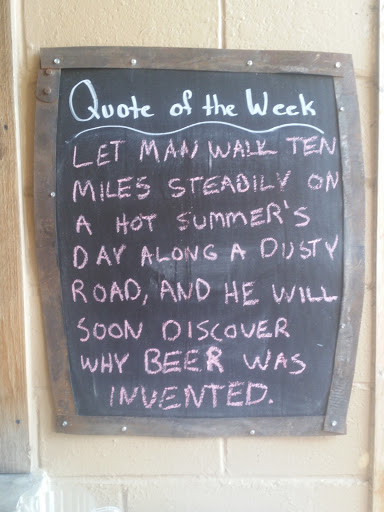 Quote of the Week
LET MAN WALK TEN
MILES STEADILY ON
A HOT SUMMER'S
DAY ALONG A DUSTY
ROAD, AND HE WILL
SOON DISCOVER
WHY BEER WAS
INVENTED.